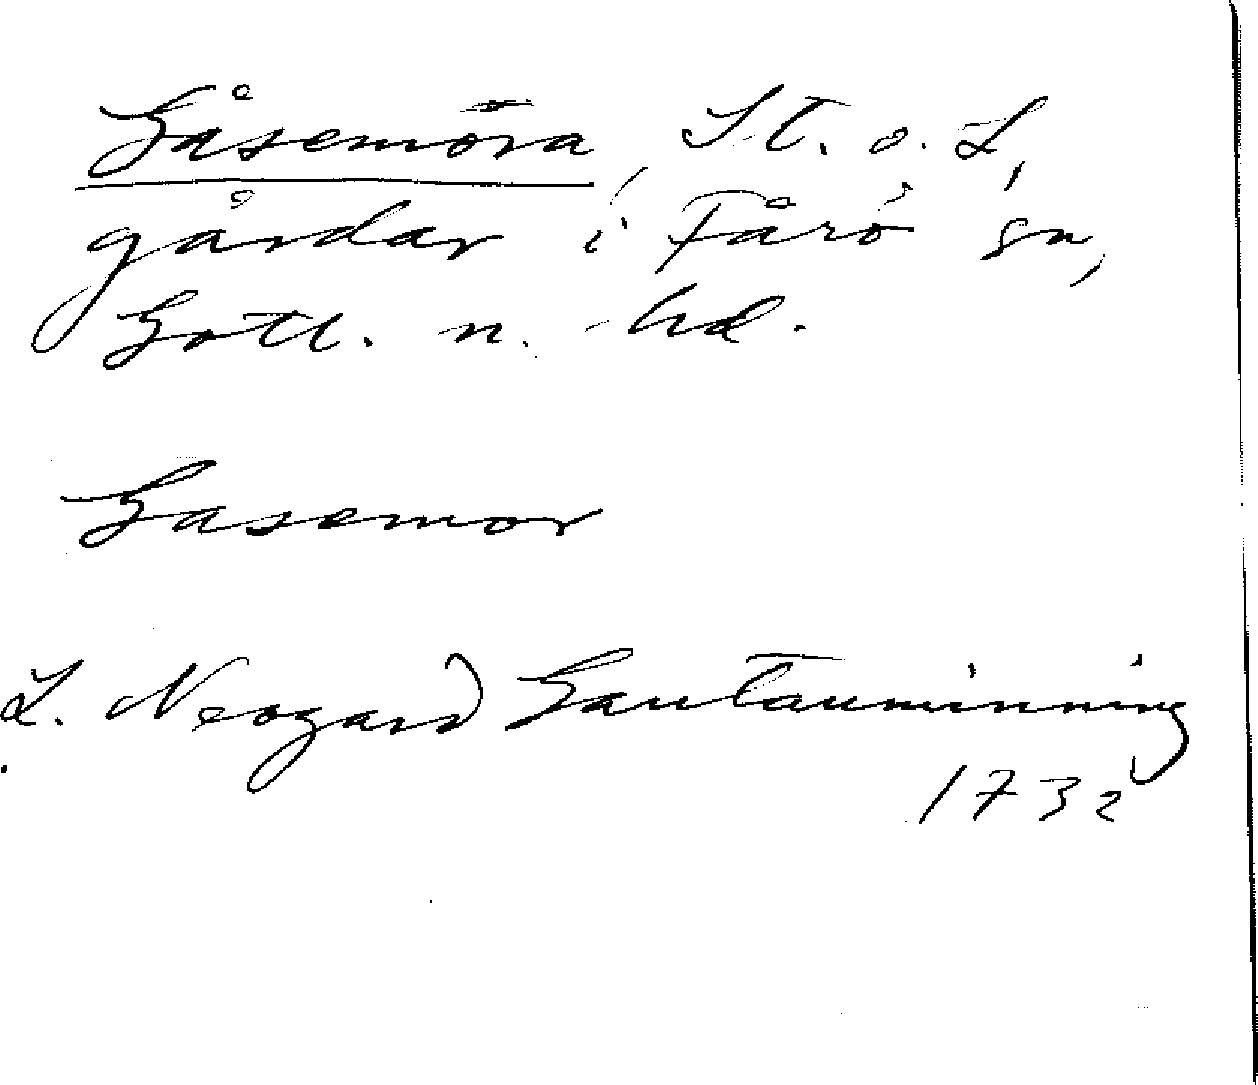 Gåsemöra, St. o. L,
gårdar i Fårö sn,
Gotl. n. hd.
Gasemor
L. Neogard Gautauminning
1732